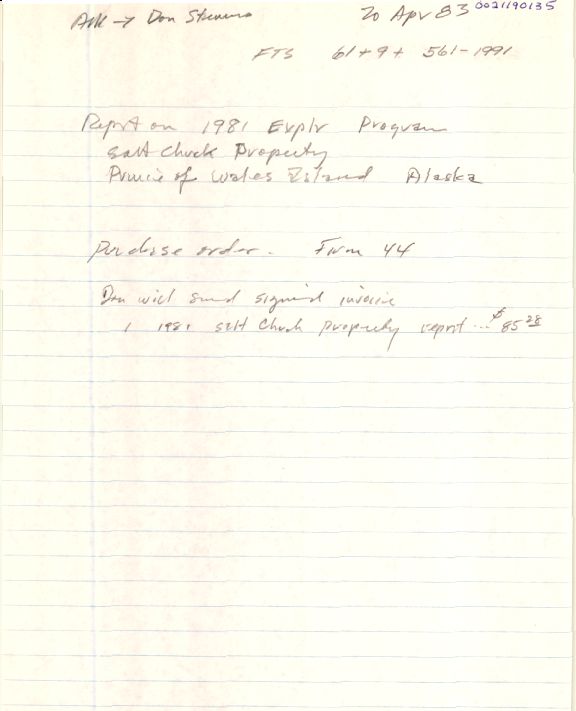 Ask → Don Stevens 20 Apr 83 0021190135
FTS 61+9+ 561-1991
Report on 1981 Explr Program
Salt Chuck Property
Prince of Wales Island Alaska
Purchase order. Form 44
Don will send signed invoice
1 1981 Salt Chuck property report ... $85 28